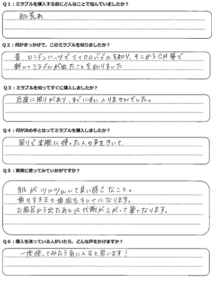 Q1：ミラブルを購入する前にどんなことで悩んでいましたか？
肌荒れ
Q2：何がきっかけで、このミラブルを知りましたか？
昔、ロンドンハーツでマイクロバブルを知り、そこからCM等で
新しいミラブルが出たことを知りました
Q3：ミラブルを知ってすぐに購入しましたか？
在庫に限りがあり、すぐに手に入りませんでした。
Q4：何が決め手となってミラブルを購入しましたか？
周りで実際に使った人の声をきいて
Q5：実際に使ってみていかがですか？
肌がツルツルして良い感じなこと。
お風呂から出たあとは代謝が上がって
Q6：購入を迷っている人がいたら、どんな声をかけますか？
一度使ってみたら気に入ると思います！